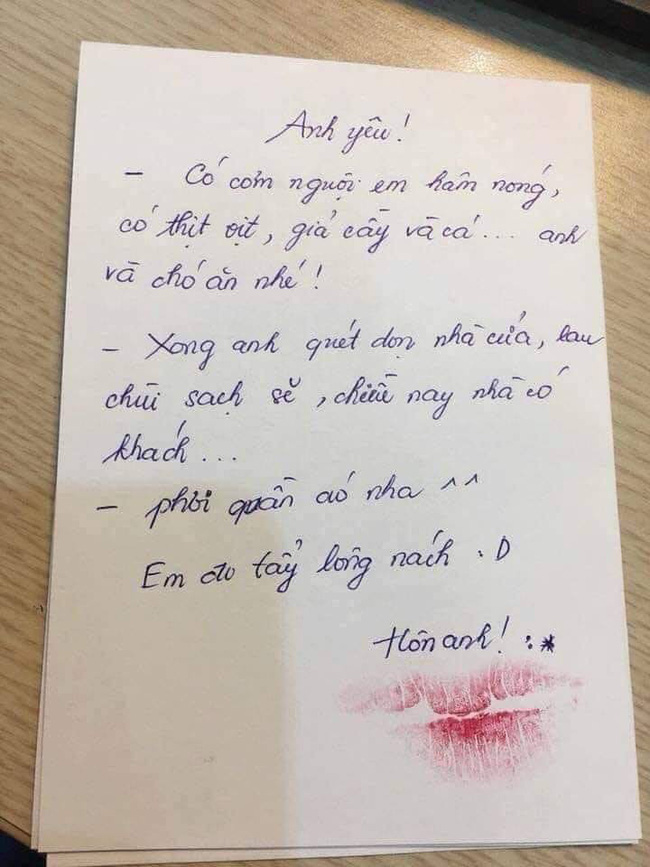 Anh yêu!
- Có cơm nguội em hâm nóng,
có thịt vịt, giả cầy và cá... anh
và chó ăn nhé!
- Xong anh quét dọn nhà cửa, lau
chùi sạch sẽ, chiều nay nhà có
khách...
- phơi quần áo nha ^^
Em đi tẩy lông nách :D
Hôn anh! :*